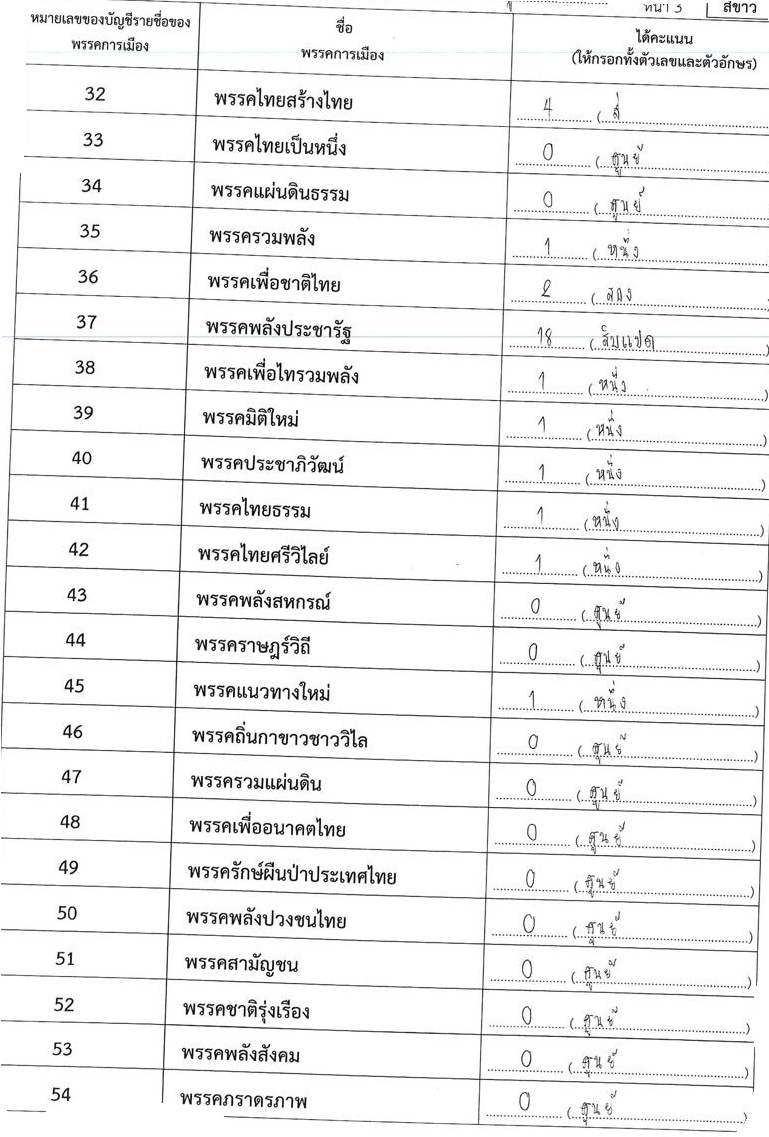 หน้า 3 สีขาว
หมายเลขของบัญชีรายชื่อของ
พรรคการเมือง
ชื่อ
พรรคการเมือง
ได้คะแนน
(ให้กรอกทั้งตัวเลขและตัวอักษร)
32 พรรคไทยสร้างไทย 4 (สี่
33 พรรคไทยเป็นหนึ่ง 0 (ศูนย์
34 พรรคแผ่นดินธรรม 0 (ศูนย์
35 พรรครวมพลัง 1 (หนึ่ง
36 พรรคเพื่อชาติไทย 2 (สอง)
37 พรรคพลังประชารัฐ 18 (สิบแปด)
38 พรรคเพื่อไทรวมพลัง 1 (หนึ่ง)
39 พรรคมิติใหม่ 1 (หนึ่ง)
40 พรรคประชาภิวัฒน์ 1 (หนึ่ง)
41 พรรคไทยธรรม 1 (หนึ่ง)
42 พรรคไทยศรีวิไลย์ 1 (หนึ่ง)
43 พรรคพลังสหกรณ์ 0 (ศูนย์)
44 พรรคราษฎร์วิถี 0 (ศูนย์)
45 พรรคแนวทางใหม่ 1 (หนึ่ง)
46 พรรคถิ่นกาขาวชาววิไล 0 (ศูนย์)
47 พรรครวมแผ่นดิน 0 (ศูนย์)
48 พรรคเพื่ออนาคตไทย 0 (ศูนย์)
49 พรรครักษ์ผืนป่าประเทศไทย 0 (ศูนย์)
50 พรรคพลังปวงชนไทย 0 (ศูนย์)
51 พรรคสามัญชน 0 (ศูนย์)
52 พรรคชาติรุ่งเรือง 0 (ศูนย์)
53 พรรคพลังสังคม 0 (ศูนย์)
54 พรรคภราดรภาพ 0 (ศูนย์)